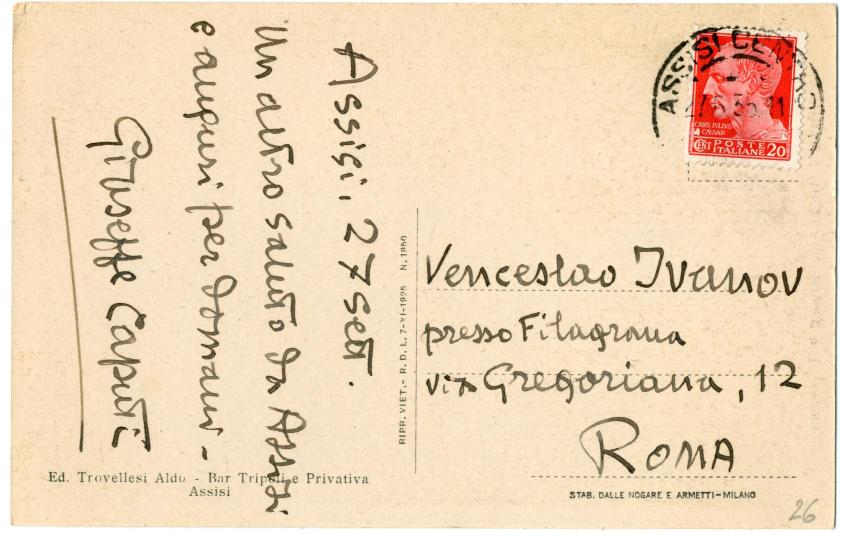 Assisi, 27 sett.
Un altro saluto da Assisi
e auguri per domani -
Giuseppe Caputi
Ed. Trovellesi Aldo - Bar Tripoli e Privativa
Assisi
RIPR. VIET. - R. D. L. 7-XI-1925 N. 1950
ASSISI CENTRO
CAIVS IVLIVS
CAESAR
CENT POSTE ITALIANE 20
Venceslao Ivanov
presso Filagrana
via Gregoriana, 12
ROMA
STAB. DALLE NOGARE E ARMETTI - MILANO
26